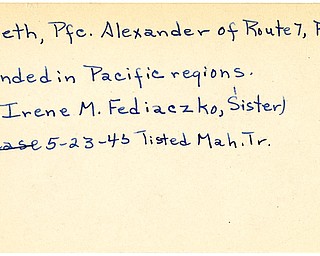 eth, Pfc. Alexander of Route 7, P
nded in Pacific regions.
Irene M. Fediaczko, Sister)
ease 5-23-45 Tisted Mah. Tr.